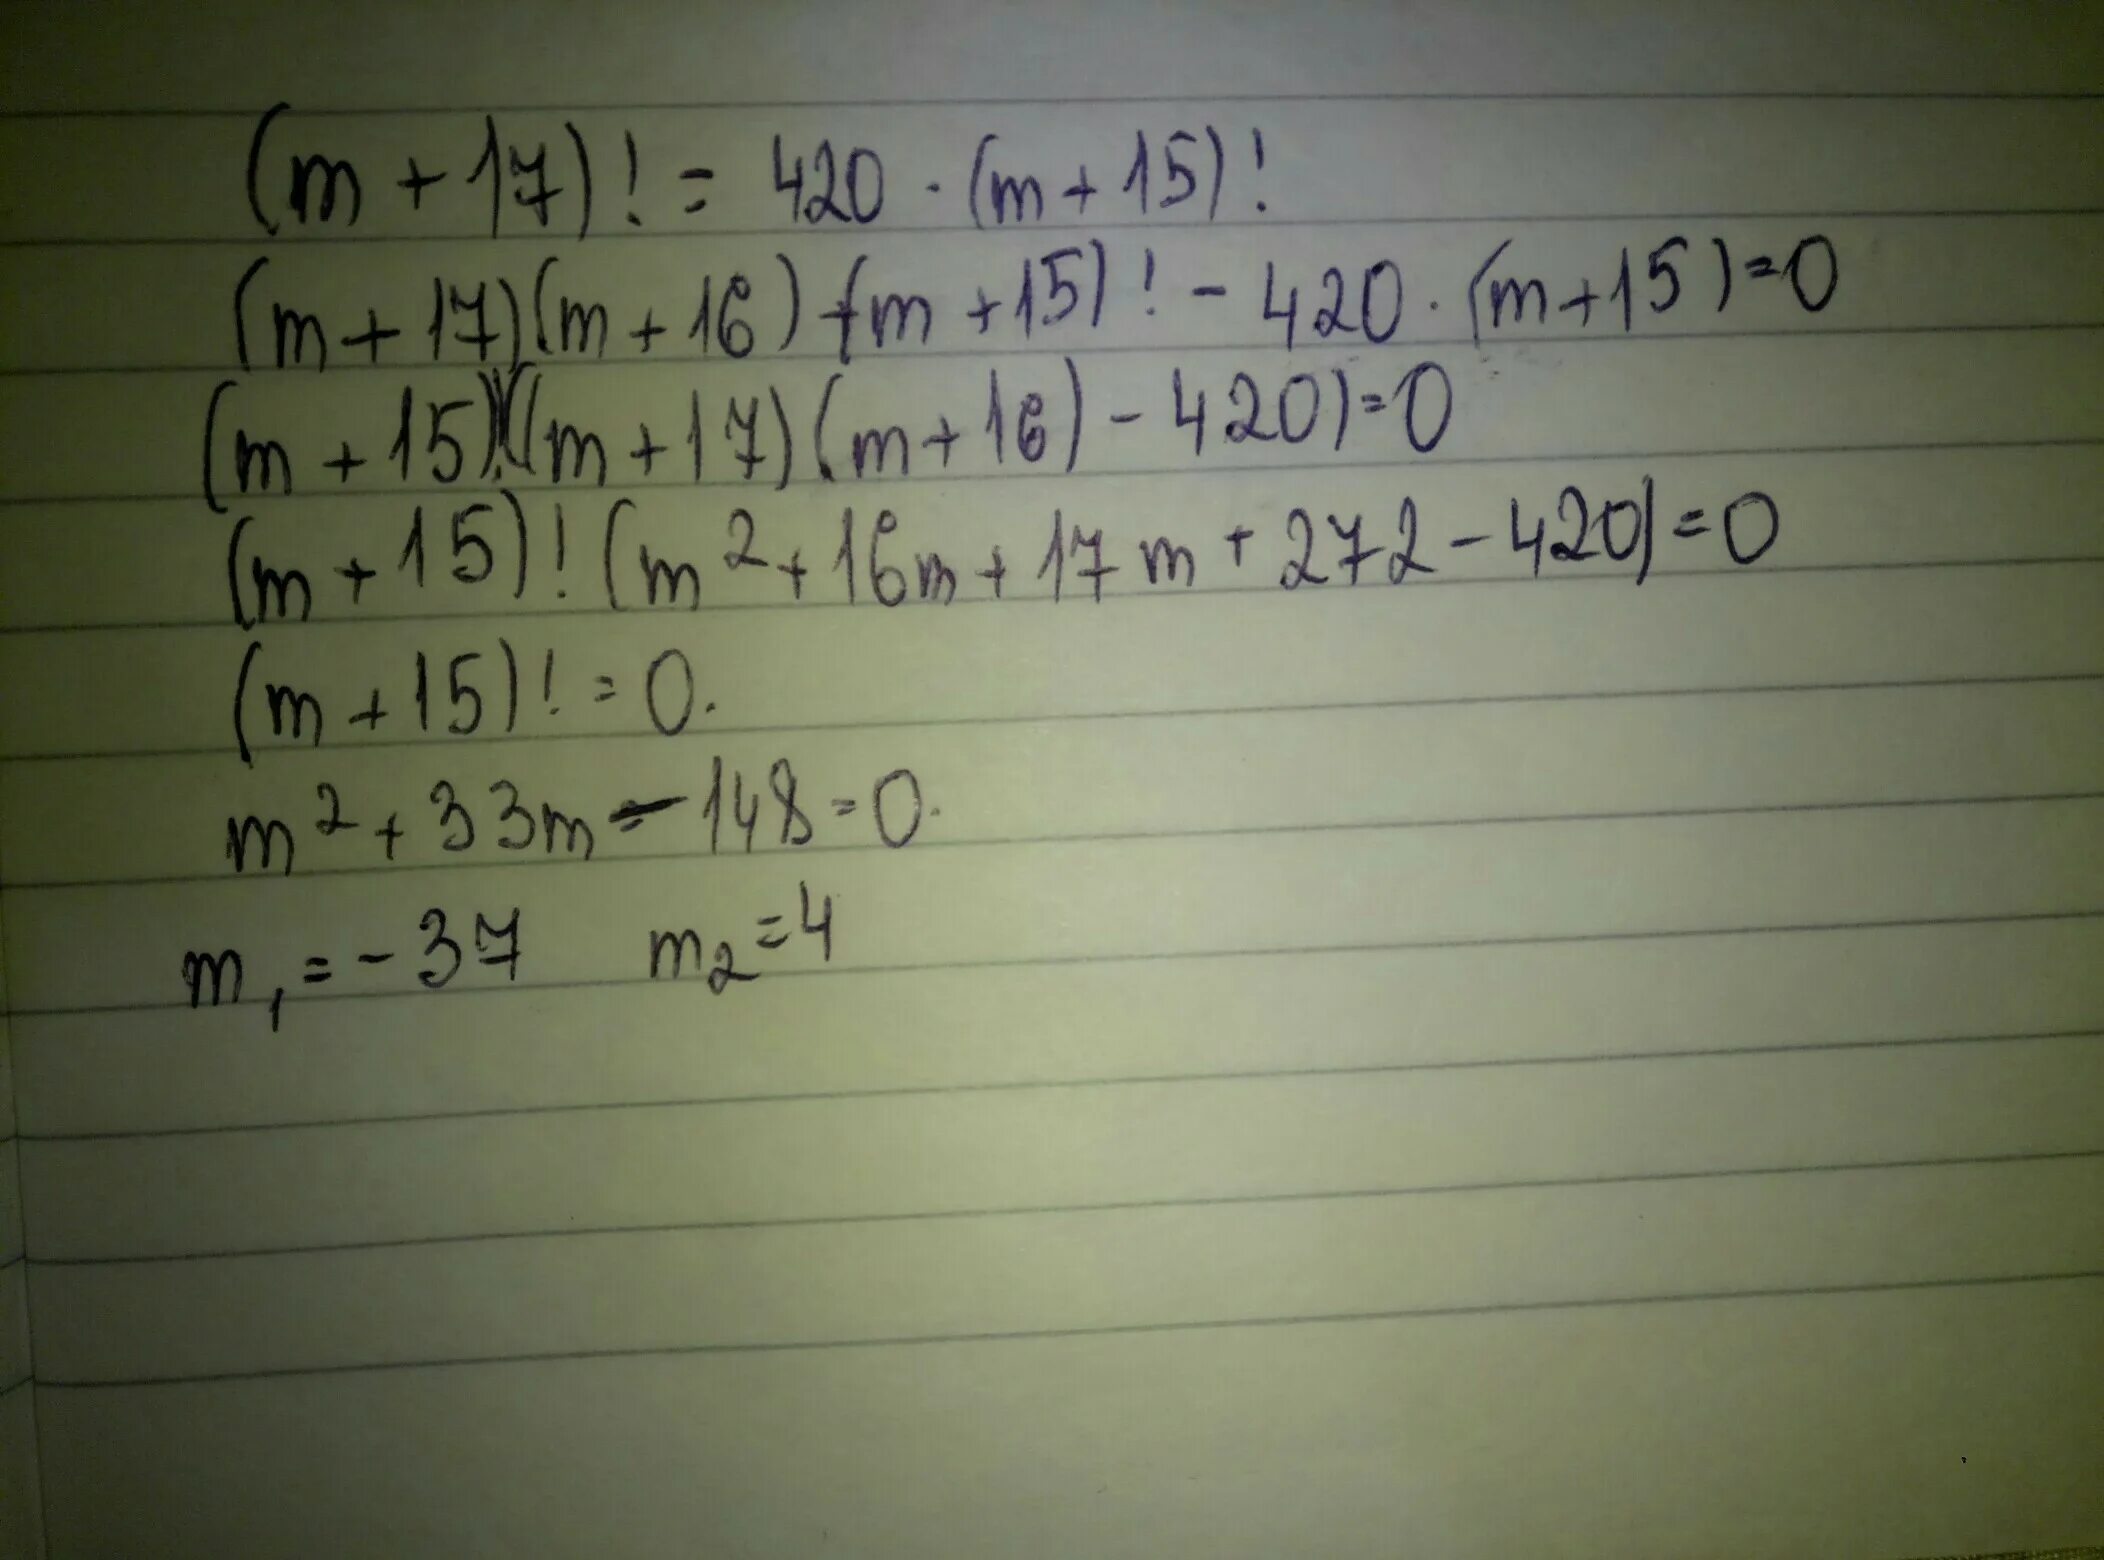 (m + 17)! = 420 · (m + 15)!
(m + 17)(m + 16) · (m + 15)! - 420 · (m + 15) = 0
(m + 15)!((m + 17)(m + 16) - 420) = 0
(m + 15)! (m² + 16m + 17m + 272 - 420) = 0
(m + 15)! = 0.
m² + 33m - 148 = 0.
m₁ = -37 m₂ = 4